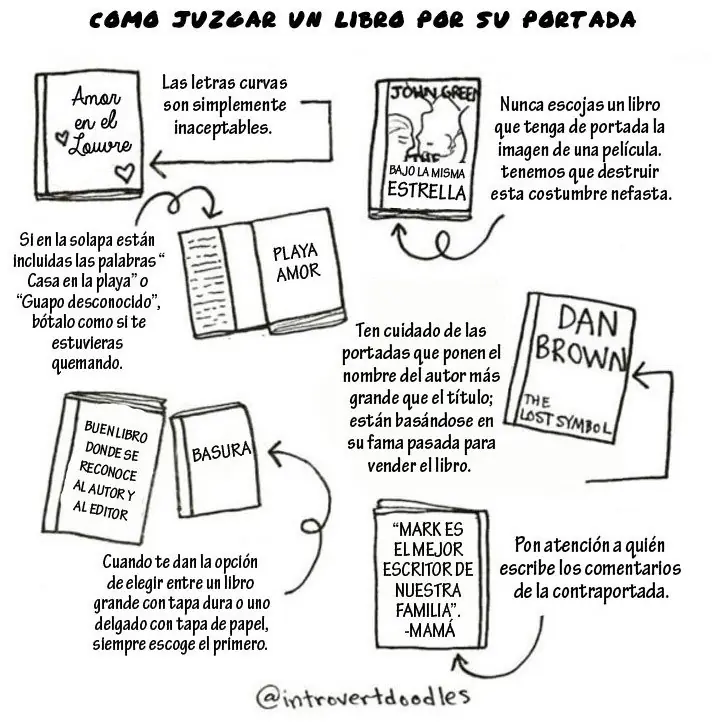 COMO JUZGAR UN LIBRO POR SU PORTADA
Amor
en el
Louvre
Las letras curvas
son simplemente
inaceptables.
JOHN GREEN
THE
BAJO LA MISMA
ESTRELLA
Nunca escojas un libro
que tenga de portada la
imagen de una película.
tenemos que destruir
esta costumbre nefasta.
Si en la solapa están
incluidas las palabras “
Casa en la playa” o
“Guapo desconocido”,
bótalo como si te
estuvieras
quemando.
PLAYA
AMOR
Ten cuidado de las
portadas que ponen el
nombre del autor más
grande que el título;
están basándose en
su fama pasada para
vender el libro.
DAN
BROWN
THE
LOST SYMBOL
BUEN LIBRO
DONDE SE
RECONOCE
AL AUTOR Y
AL EDITOR
BASURA
Cuando te dan la opción
de elegir entre un libro
grande con tapa dura o uno
delgado con tapa de papel,
siempre escoge el primero.
“MARK ES
EL MEJOR
ESCRITOR DE
NUESTRA
FAMILIA”.
-MAMÁ
Pon atención a quién
escribe los comentarios
de la contraportada.
@introvertdoodles